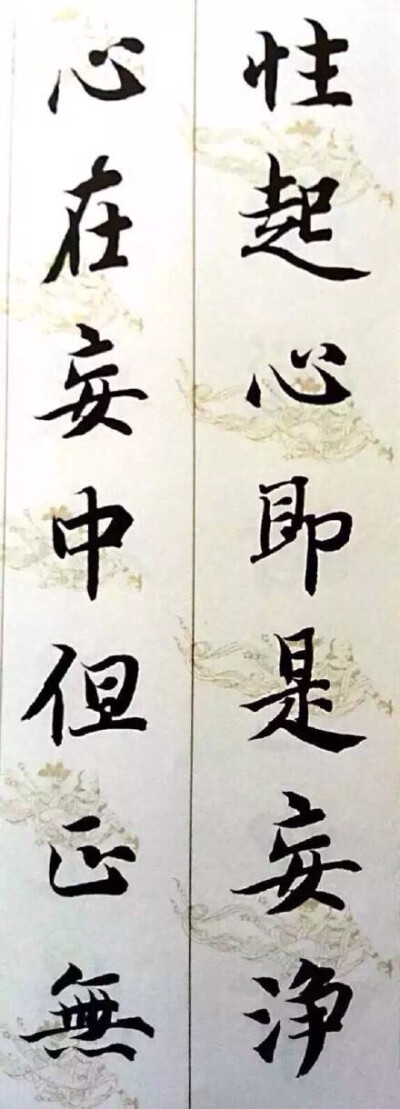 性起心即是妄净
心在妄中但正無